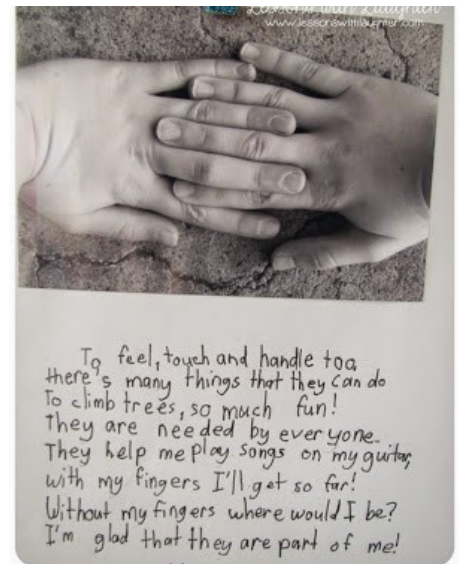 Lessons with Laughter
www.lessonswithlaughter.com
To feel, touch and handle too
there's many things that they can do
To climb trees, so much fun!
They are needed by everyone.
They help me play songs on my guitar,
with my fingers I'll get so far!
Without my fingers where would I be?
I'm glad that they are part of me!